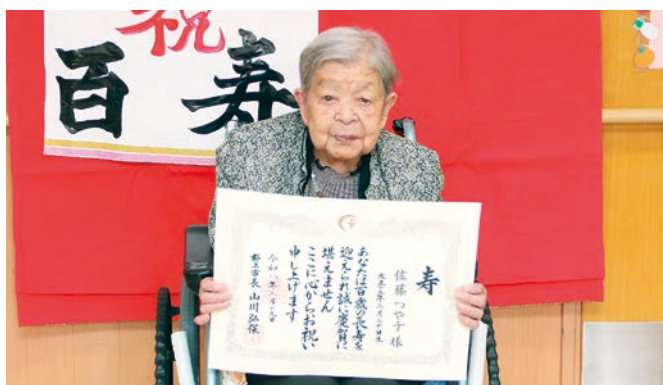 祝
百寿
寿
佐藤つや子様
あなたは百歳の長寿を
迎えられ誠に慶賀に
堪えません
ここに心からお祝い
申し上げます
令和八年
郡上市長 山川弘保